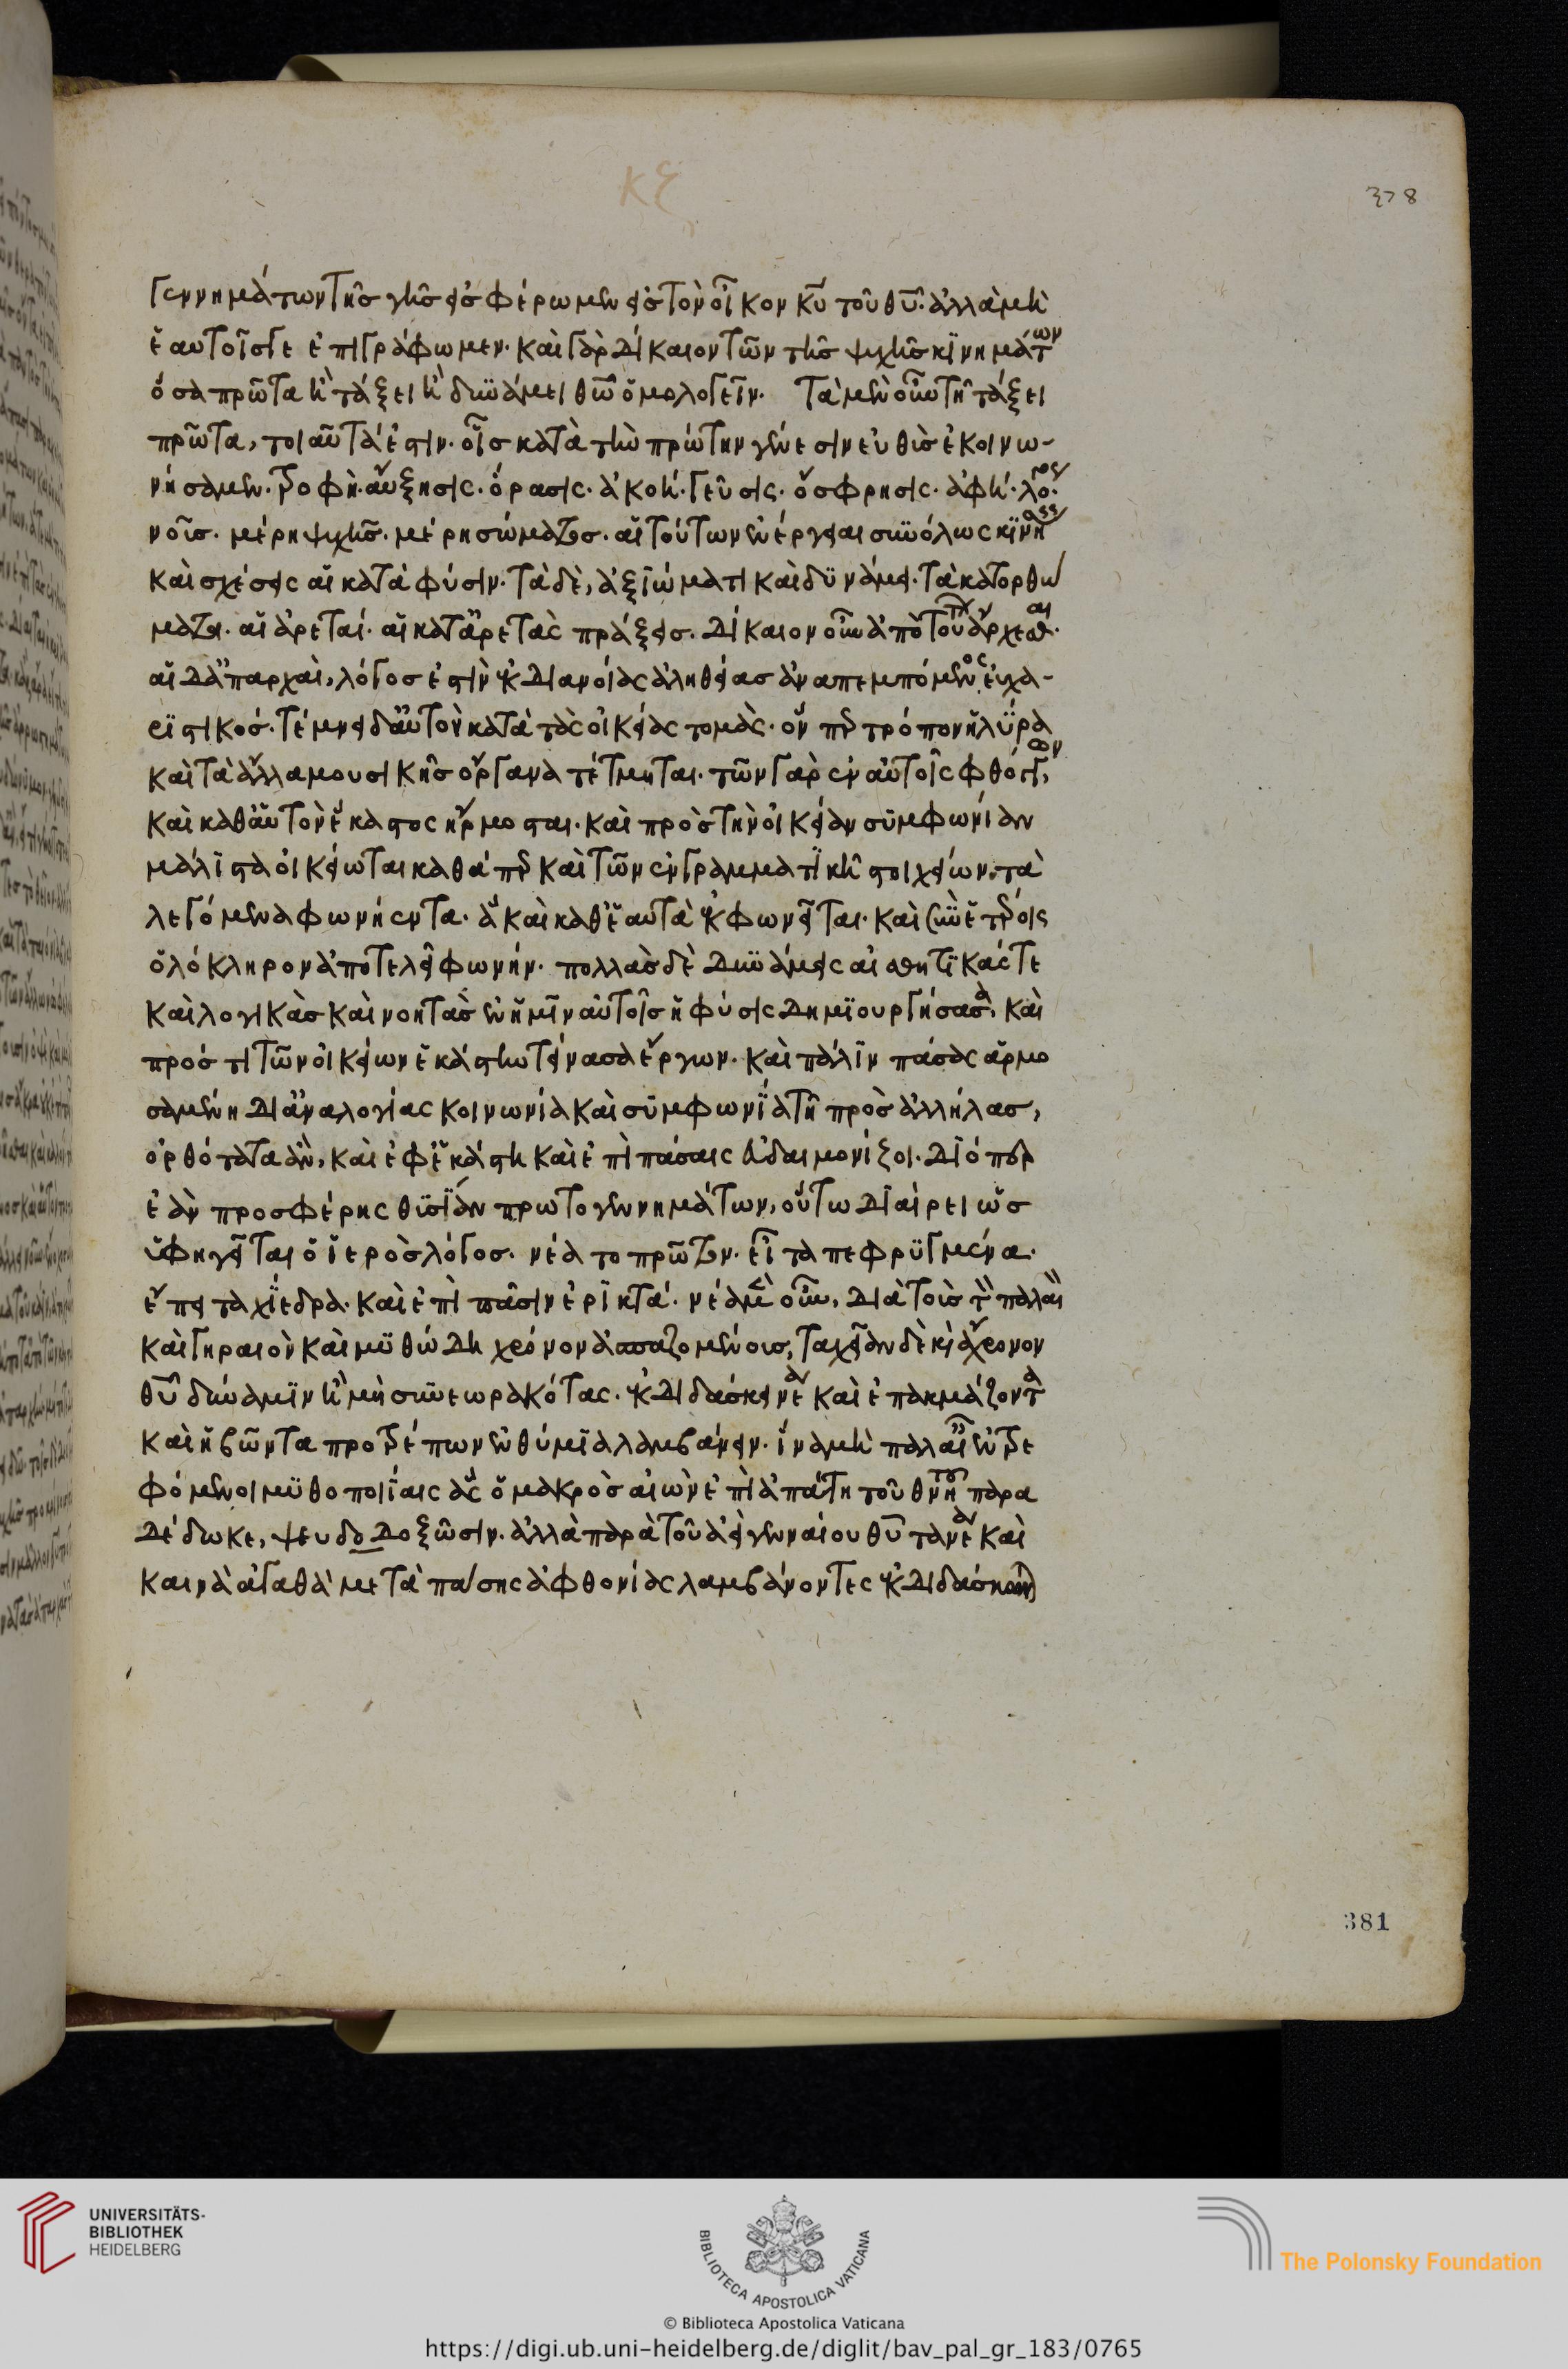 κξ
378
γεννημάτων τῆσ γῆσ εἰσφέρωμεν εἰσ τὸν οἶκον κυ τοῦ θυ. ἀλλὰ μὴ
ἑαυτοῖσ γε ἐπιγράφωμεν. καὶ γὰρ δίκαιον τῶν τῆσ ψυχῆσ κινημάτων
ὅσα πρῶτα ἢ τάξει ἢ δυνάμει θω ὁμολογεῖν. Τὰ μὲν οὖν τῆ τάξει
πρῶτα, τοιαῦτά ἐστιν. οἷσ κατὰ τὴν πρώτην γένεσιν εὐθὺσ ἐκοινω-
νήσαμεν. τροφὴ. αὔξησις. ὅρασις. ἀκοή. γεῦσις. ὄσφρησις. ἀφή. λόγος.
νοῦσ. μέρη ψυχῆσ. μέρη σώματοσ. αἱ τούτων ἐνέργειαι συνόλως κινήσεις
καὶ σχέσεις αἱ κατὰ φύσιν. τὰ δὲ, ἀξιώματι καὶ δυνάμει. τὰ κατορθώ
ματα. αἱ ἀρεταί. αἱ κατ' ἀρετὰς πράξεισ. δίκαιον οὖν ἀπὸ τούτων ἄρχεσθαι.
αἱ δ' ἀπαρχαὶ, λόγοσ ἐστὶν ἐκ διανοίας ἀληθείασ ἀναπεμπόμενος εὐχα-
ριστικοσ. τέμνει δ' αὐτὸν κατὰ τὰς οἰκείας τομὰς. ὃν περ τρόπον ἡ λύρα
καὶ τὰ ἄλλα μουσικῆσ ὄργανα τέτμηται. τῶν γὰρ ἐν αὐτοῖς φθόγγων,
καὶ καθ' αὑτὸν ἕκαστος ἥρμοσται. καὶ πρὸσ τὴν οἰκείαν συμφωνίαν
μάλιστα οἰκείωται καθάπερ καὶ τῶν ἐν γραμματικῆ στοιχείων. τὰ
λεγόμενα φωνήεντα. ἃ καὶ καθ' ἑαυτὰ ἐκφωνεῖται. καὶ σὺν ἑτέροις
ὁλόκληρον ἀποτελεῖ φωνήν. πολλὰσ δὲ δυνάμεις αἰσθητικάς τε
καὶ λογικὰσ καὶ νοητὰσ ἐν ἡμῖν αὐτοῖσ ἡ φύσις δημιουργήσασα, καὶ
πρόσ τι τῶν οἰκείων ἑκάστην τείνασα ἔργων. καὶ πάλιν πάσας ἁρμο
σαμένη δι' ἀναλογίας κοινωνία καὶ συμφωνία τῆ πρὸσ ἀλλήλασ,
ὀρθότατα ἂν, καὶ ἐφ' ἑκάστη καὶ ἐπὶ πάσαις εὐδαιμονίζοι. διόπερ
ἐὰν προσφέρης θυσίαν πρωτογεννημάτων, οὕτω διαίρει ὡσ
ὑφηγεῖται ὁ ἱερὸσ λόγοσ. νέα το πρῶτον. εἶτα πεφρυγμένα.
ἔπειτα χίεδρα. καὶ ἐπὶ πᾶσιν ἐρικτά. νέα μὲν οὖν, διὰ τοῦσ τοῖσ τὸν παλαιὸν
καὶ γηραιὸν καὶ μυθώδη χρόνον ἀσπαζομένοισ, ταχεῖαν δὲ καὶ ἄχρονον
θυ δύναμιν ἣ μὴ συνεωρακότας. ἐκδιδάσκει νέα καὶ ἐπακμάζοντα
καὶ ἡβῶντα προτρέπων ἐνθύμια λαμβάνειν. ἵνα μὴ παλαιᾶ ἐντρε
φόμενοι μυθοποιίαις ἃς ὁ μακρὸσ αἰὼν ἐπὶ ἀπάτη τοῦ θνητοῦ παρα
δέδωκε, ψευδοδοξῶσιν. ἀλλὰ παρὰ τοῦ ἀεὶ γενναίου θυ τὰ νέα καὶ
καινὰ ἀγαθὰ μετὰ πάσης ἀφθονίας λαμβάνοντες ἐκδιδάσκωνται
381
UNIVERSITÄTS-
BIBLIOTHEK
HEIDELBERG
BIBLIOTECA APOSTOLICA VATICANA
The Polonsky Foundation
© Biblioteca Apostolica Vaticana
https://digi.ub.uni-heidelberg.de/diglit/bav_pal_gr_183/0765